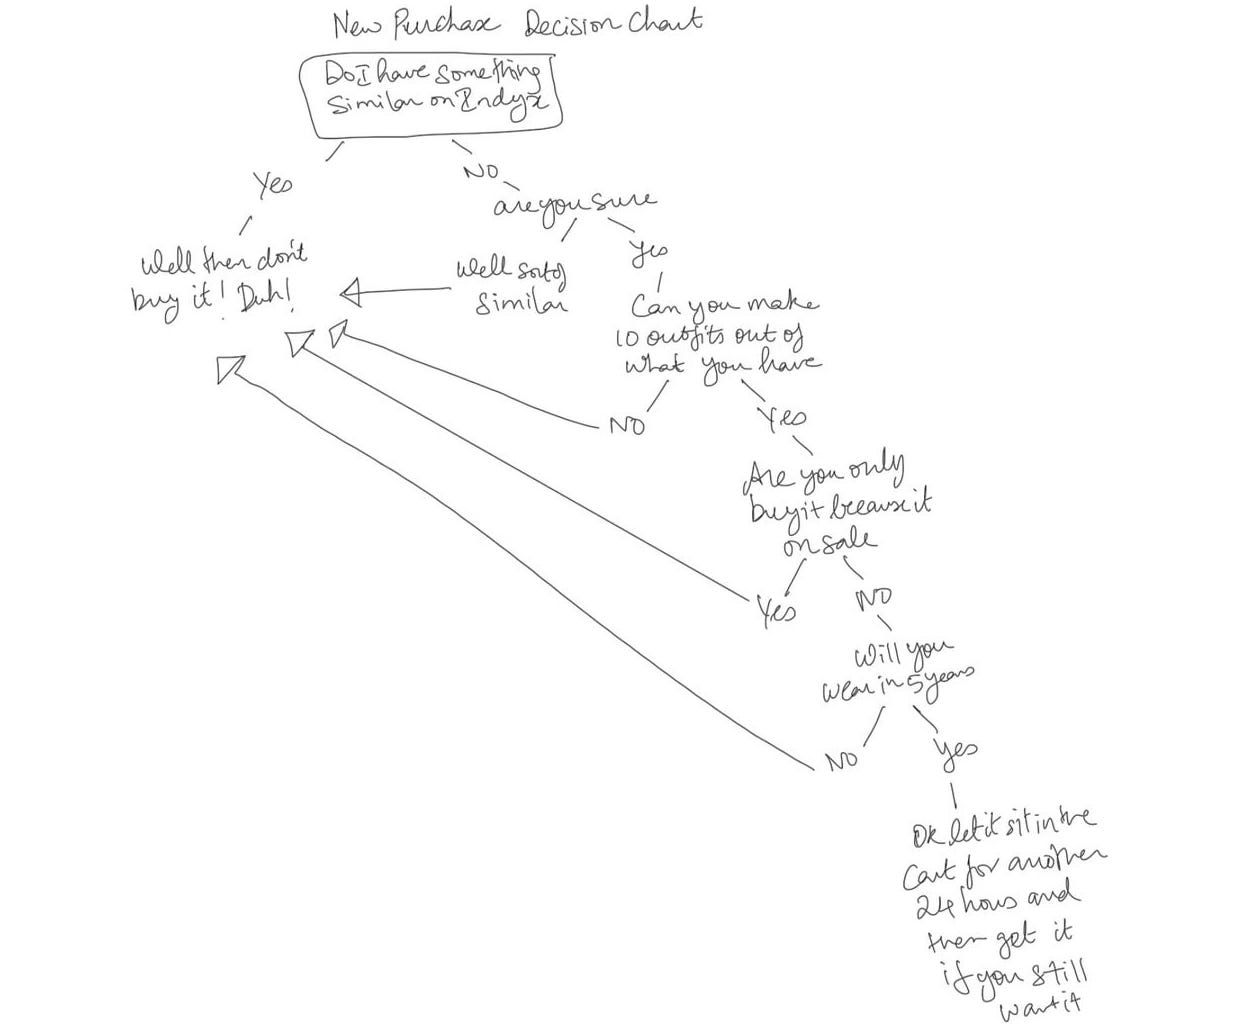 New Purchase Decision Chart
Do I have something
Similar on Indyx
Yes
NO
are you sure
Well then don't
buy it! Duh!
Well sort of
Similar
Yes
Can you make
10 outfits out of
what you have
NO
Yes
Are you only
buy it because it
on sale
Yes
NO
Will you
wear in 5 years
NO
Yes
Ok let it sit in the
Cart for another
24 hours and
then get it
if you still
want it